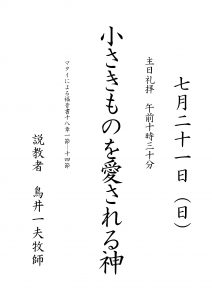 七月二十一日（日）
主日礼拝　午前十時三十分
小さきものを愛される神
マタイによる福音書十八章一節―十四節
説教者　鳥井一夫牧師